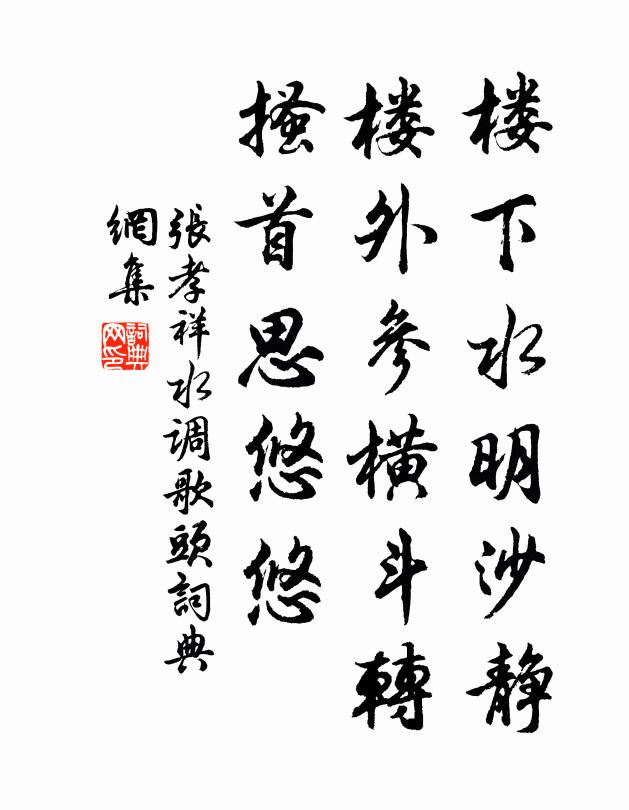 楼下水明沙静
楼外参横斗轉
搔首思悠悠
張孝祥水调歌頭詞典
網集
詞典
网印